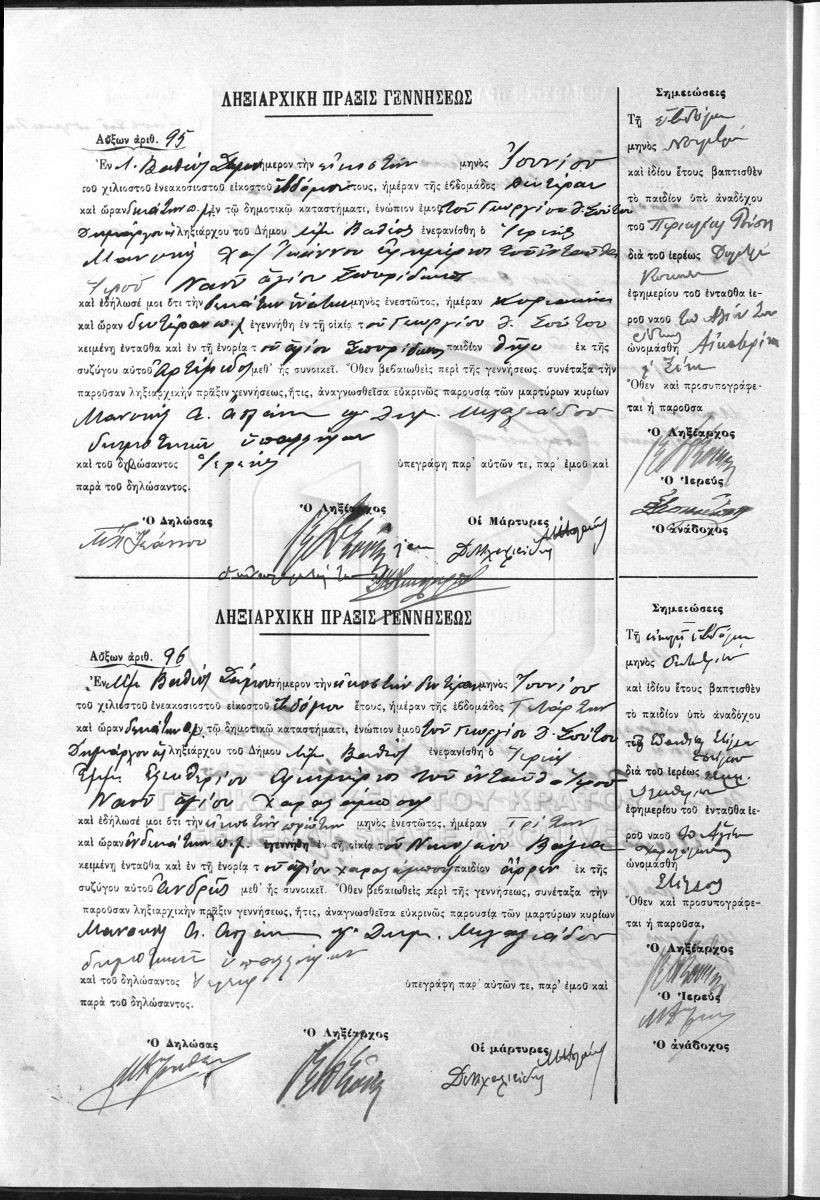 ΛΗΞΙΑΡΧΙΚΗ ΠΡΑΞΙΣ ΓΕΝΝΗΣΕΩΣ
Αὔξων ἀριθ. 95
Ἐν Λ. Βαθέος Σάμου σήμερον τὴν εἰκοστὴν μηνὸς Ἰουνίου
τοῦ χιλιοστοῦ ἐνεακοσιοστοῦ εἰκοστοῦ ἑβδόμου ἔτους, ἡμέραν τῆς ἑβδομάδος Δευτέραν
καὶ ὥραν δεκάτην π.μ. ἐν τῷ δημοτικῷ καταστήματι, ἐνώπιον ἐμοῦ τοῦ Γεωργίου Δ. Σούτου
Δημάρχου ὡς ληξιάρχου τοῦ Δήμου Λιμ. Βαθέος ἐνεφανίσθη ὁ Ἱερεὺς
Μανουὴλ Χατζ Ἰωάννου ἐφημέριος τοῦ ἐνταῦθα
Ἱεροῦ Ναοῦ ἁγίου Σπυρίδωνος
καὶ ἐδήλωσέ μοι ὅτι τὴν δεκάτην ἐνάτην μηνὸς ἐνεστῶτος, ἡμέραν Κυριακὴν
καὶ ὥραν δευτέραν π.μ. ἐγεννήθη ἐν τῇ οἰκίᾳ τοῦ Γεωργίου Δ. Σούτου
κειμένῃ ἐνταῦθα καὶ ἐν τῇ ἐνορίᾳ τοῦ ἁγίου Σπυρίδωνος παιδίον θῆλυ ἐκ τῆς
συζύγου αὐτοῦ Ἀρτέμιδος μεθ' ἧς συνοικεῖ. Ὅθεν βεβαιωθεὶς περὶ τῆς γεννήσεως. συνέταξα τὴν
παροῦσαν ληξιαρχικὴν πρᾶξιν γεννήσεως, ἥτις, ἀναγνωσθεῖσα εὐκρινῶς παρουσίᾳ τῶν μαρτύρων κυρίων
Μανουὴλ Α. καὶ Δημ. Μιχαλιάδου
δημοτικῶν ὑπαλλήλων
καὶ τοῦ δηλώσαντος Ἱερέως ὑπεγράφη παρ' αὐτῶν τε, παρ' ἐμοῦ καὶ
παρὰ τοῦ δηλώσαντος.
Ὁ Δηλώσας
Ὁ Ληξίαρχος
Οἱ Μάρτυρες
Μ Χ Ἰωάννου
Δ Μιχαλιάδης
Σημειώσεις
Τῇ ἑβδόμῃ
μηνὸς Νοεμβρίου
καὶ ἰδίου ἔτους βαπτισθὲν
τὸ παιδίον ὑπὸ ἀναδόχου
τοῦ Περικλῆ
διὰ τοῦ ἱερέως
ἐφημερίου τοῦ ἐνταῦθα ἱε-
ροῦ ναοῦ τοῦ Ἁγίου Σπυ
ρίδωνος
ὠνομάσθη Αἰκατερίνη
Ὅθεν καὶ προσυπογράφε-
ται ἡ παροῦσα
Ὁ Ληξίαρχος
Ὁ Ἱερεύς
Ὁ ἀνάδοχος
ΛΗΞΙΑΡΧΙΚΗ ΠΡΑΞΙΣ ΓΕΝΝΗΣΕΩΣ
Αὔξων ἀριθ. 96
Ἐν Λιμ. Βαθέος Σάμου σήμερον τὴν εἰκοστὴν δευτέραν μηνὸς Ἰουνίου
τοῦ χιλιοστοῦ ἐνεακοσιοστοῦ εἰκοστοῦ ἑβδόμου ἔτους, ἡμέραν τῆς ἑβδομάδος Τετάρτην
καὶ ὥραν δεκάτην π.μ. ἐν τῷ δημοτικῷ καταστήματι, ἐνώπιον ἐμοῦ τοῦ Γεωργίου Δ. Σούτου
Δημάρχου ὡς ληξιάρχου τοῦ Δήμου Λιμ. Βαθέος ἐνεφανίσθη ὁ Ἱερεὺς
Ἐμμ. Ἐλευθερίου ἐφημέριος τοῦ ἐνταῦθα Ἱεροῦ
Ναοῦ ἁγίου Χαραλάμπους
καὶ ἐδήλωσέ μοι ὅτι τὴν εἰκοστὴν πρώτην μηνὸς ἐνεστῶτος, ἡμέραν Τρίτην
καὶ ὥραν ἑνδεκάτην π.μ. ἐγεννήθη ἐν τῇ οἰκίᾳ τοῦ Νικολάου
κειμένῃ ἐνταῦθα καὶ ἐν τῇ ἐνορίᾳ τοῦ ἁγίου Χαραλάμπους παιδίον ἄρρεν ἐκ τῆς
συζύγου αὐτοῦ μεθ' ἧς συνοικεῖ. Ὅθεν βεβαιωθεὶς περὶ τῆς γεννήσεως, συνέταξα τὴν
παροῦσαν ληξιαρχικὴν πρᾶξιν γεννήσεως, ἥτις, ἀναγνωσθεῖσα εὐκρινῶς παρουσίᾳ τῶν μαρτύρων κυρίων
Μανουὴλ Α. καὶ Δημ. Μιχαλιάδου
δημοτικῶν ὑπαλλήλων
καὶ τοῦ δηλώσαντος Ἱερέως ὑπεγράφη παρ' αὐτῶν τε, παρ' ἐμοῦ καὶ
παρὰ τοῦ δηλώσαντος.
Ὁ Δηλώσας
Ὁ Ληξίαρχος
Οἱ μάρτυρες
Δ Μιχαλιάδης
Σημειώσεις
Τῇ εἰκοστῇ ἑβδόμῃ
μηνὸς
καὶ ἰδίου ἔτους βαπτισθὲν
τὸ παιδίον ὑπὸ ἀναδόχου
διὰ τοῦ ἱερέως Ἐμμ.
Ἐλευθερίου
ἐφημερίου τοῦ ἐνταῦθα ἱε-
ροῦ ναοῦ τοῦ Ἁγίου
Χαραλάμπους
ὠνομάσθη
Ὅθεν καὶ προσυπογράφε-
ται ἡ παροῦσα,
Ὁ Ληξίαρχος
Ὁ Ἱερεύς
Ὁ ἀνάδοχος